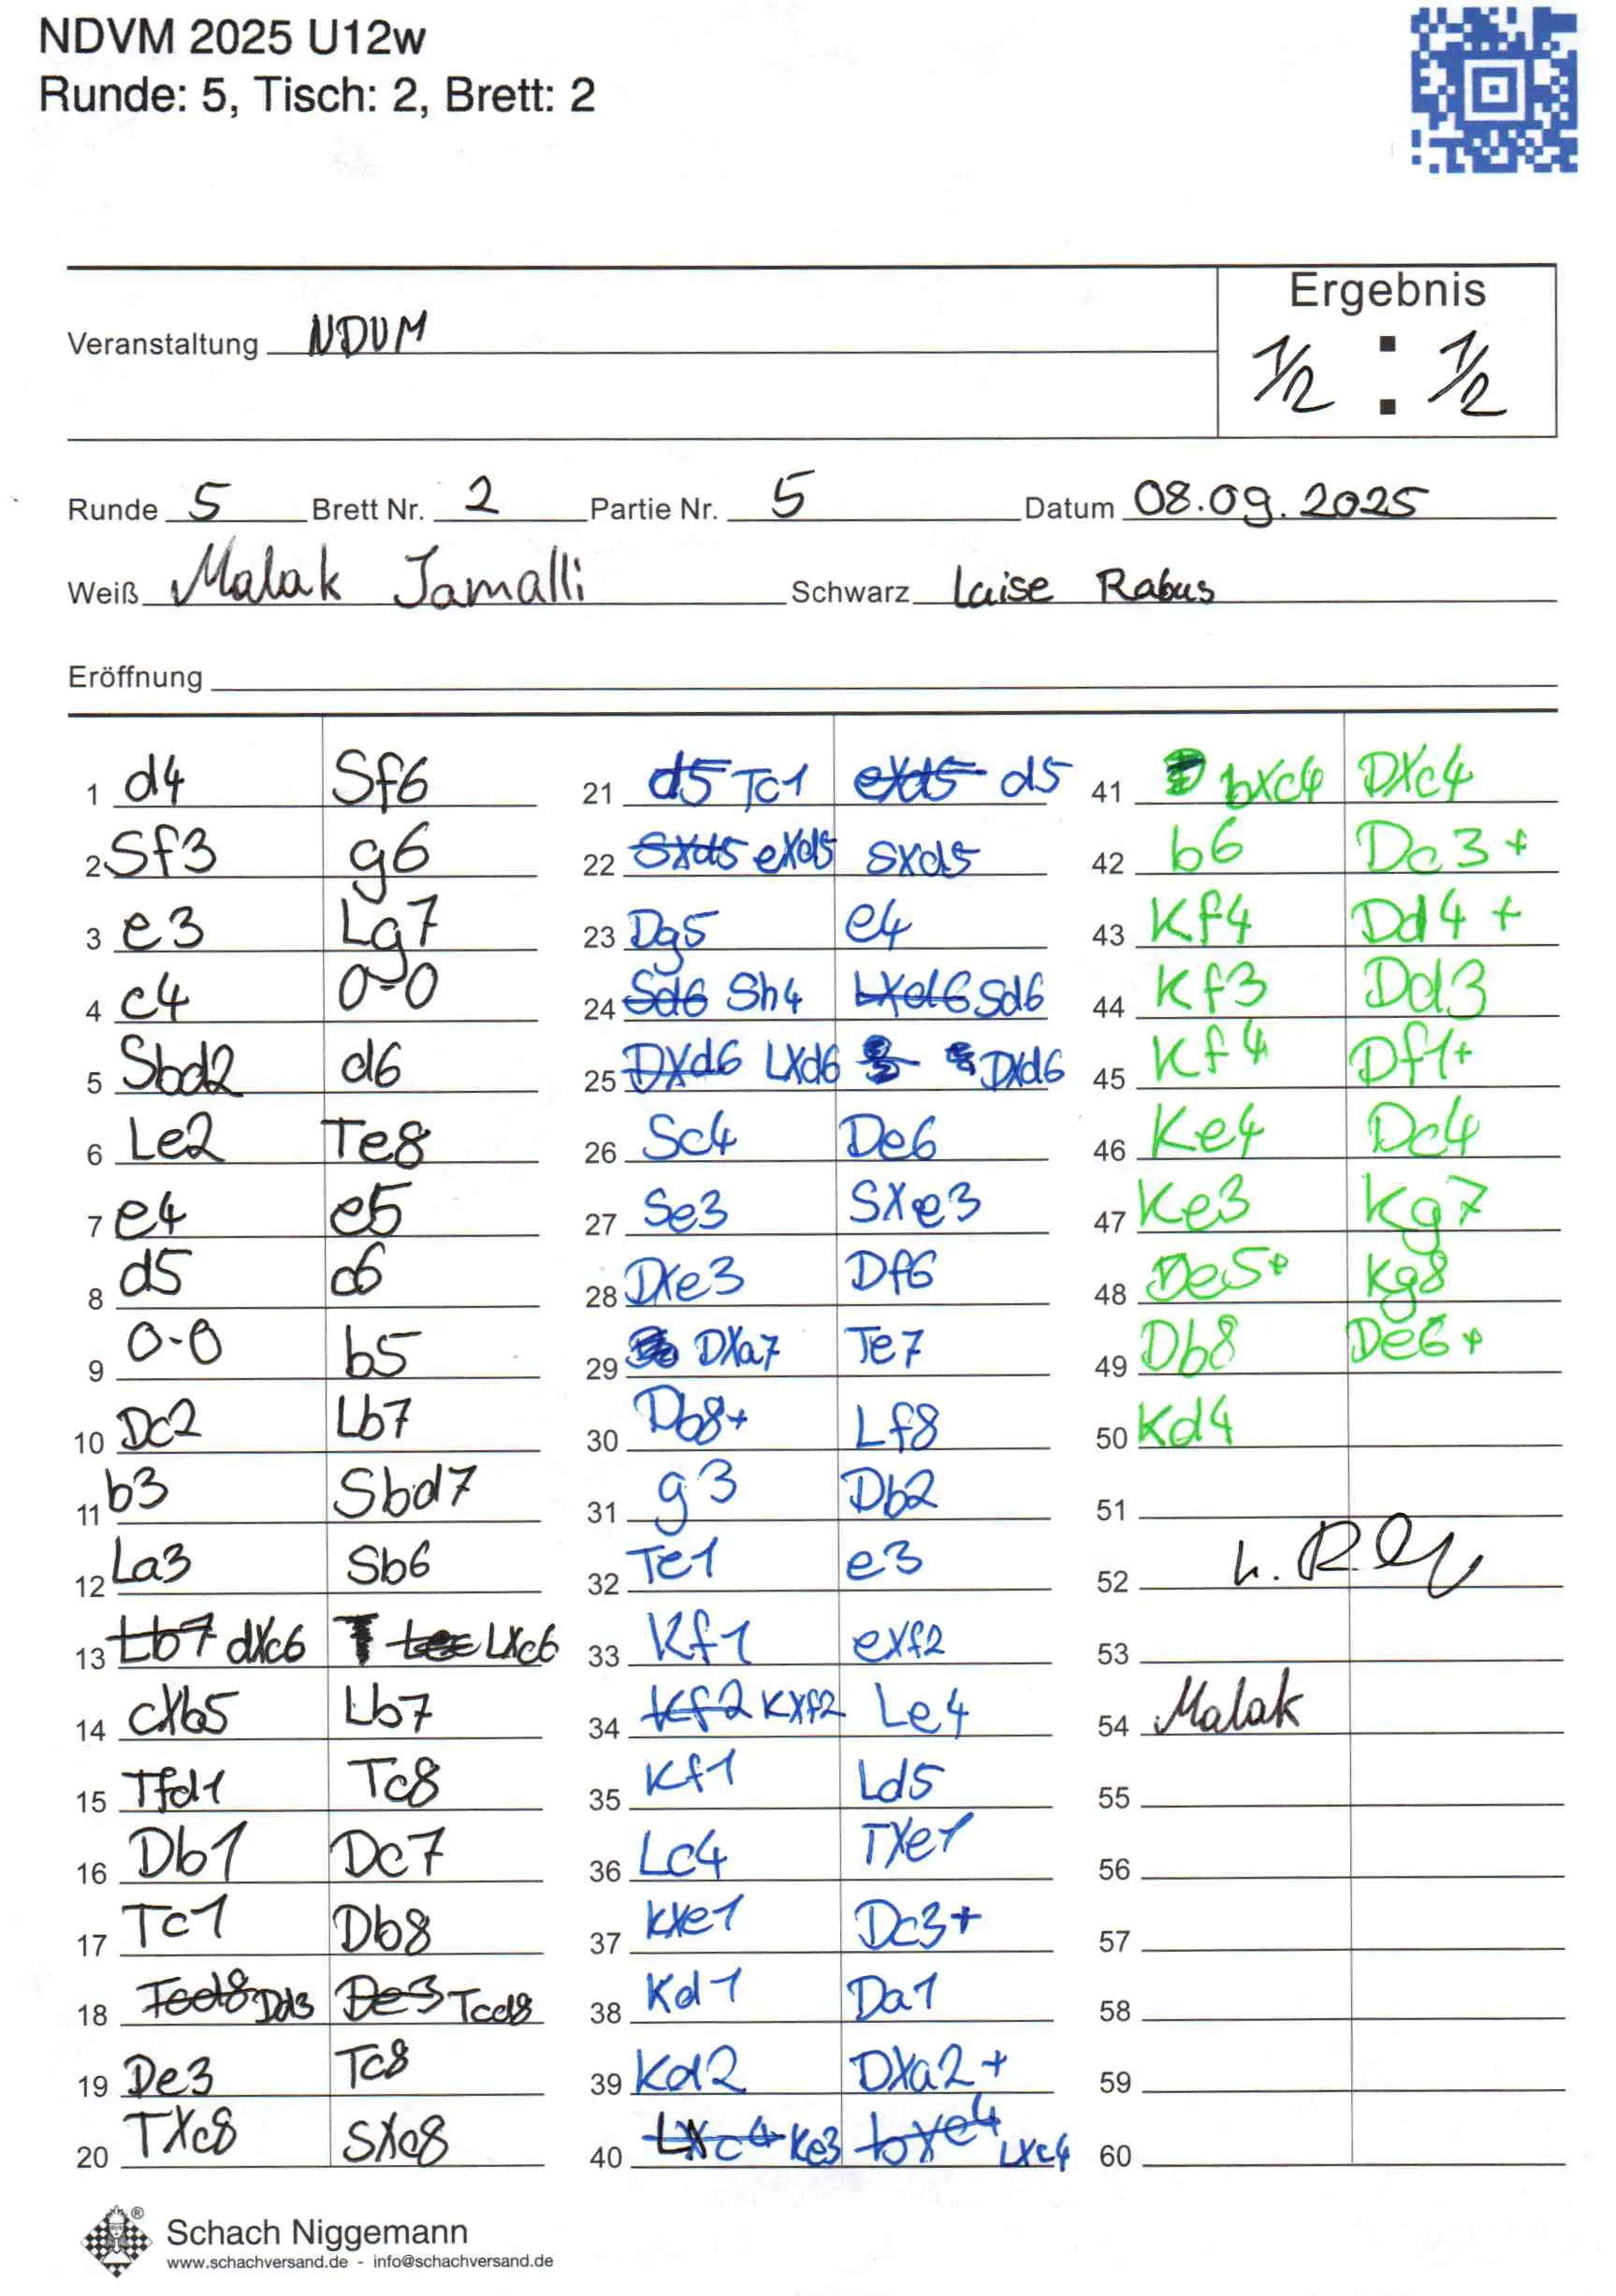 NDVM 2025 U12w
Runde: 5, Tisch: 2, Brett: 2
Ergebnis
Veranstaltung NDVM
1/2 : 1/2
Runde 5 Brett Nr. 2 Partie Nr. 5 Datum 08.09.2025
Weiß Malak Jamalli Schwarz Luise Rabus
Eröffnung
1 d4 Sf6
2 Sf3 g6
3 e3 Lg7
4 c4 0-0
5 Sbd2 d6
6 Le2 Te8
7 e4 e5
8 d5 c6
9 0-0 b5
10 Dc2 Lb7
11 b3 Sbd7
12 La3 Sb6
13 Lb7 dXc6 LXc6
14 cXb5 Lb7
15 Tfd1 Tc8
16 Db1 Dc7
17 Tc1 Db8
18 Tcd8 Dd3 De3 Tcd8
19 De3 Tc8
20 TXc8 SXc8
21 d5 Tc1 eXd5 d5
22 SXd5 eXd5 SXd5
23 Dg5 e4
24 Sd6 Sh4 LXd6 Sd6
25 DXd6 LXd6 DXd6
26 Sc4 De6
27 Se3 SXe3
28 DXe3 Df6
29 DXa7 Te7
30 Db8+ Lf8
31 g3 Db2
32 Te1 e3
33 Kf1 eXf2
34 Kf2 KXf2 Le4
35 Kf1 Ld5
36 Lc4 TXe1
37 KXe1 Dc3+
38 Kd1 Da1
39 Kd2 DXa2+
40 LXc4 Ke3 bXc4 LXc4
41 bXc4 DXc4
42 b6 Dc3+
43 Kf4 Dd4+
44 Kf3 Dd3
45 Kf4 Df1+
46 Ke4 Dc4
47 Ke3 Kg7
48 De5+ Kg8
49 Db8 De6+
50 Kd4
51
52
53
54 Malak
55
56
57
58
59
60
® Schach Niggemann
www.schachversand.de - info@schachversand.de